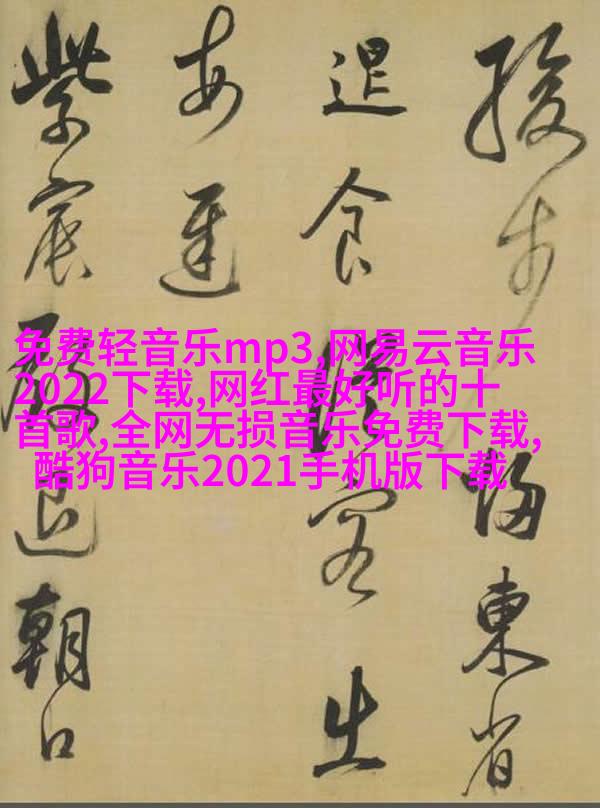 緩步歸東省
退食從容出
每遲
紫宸殿退朝口
免费轻音乐mp3,网易云音乐
2022下载,网红最好听的十
首歌,全网无损音乐免费下载,
酷狗音乐2021手机版下载